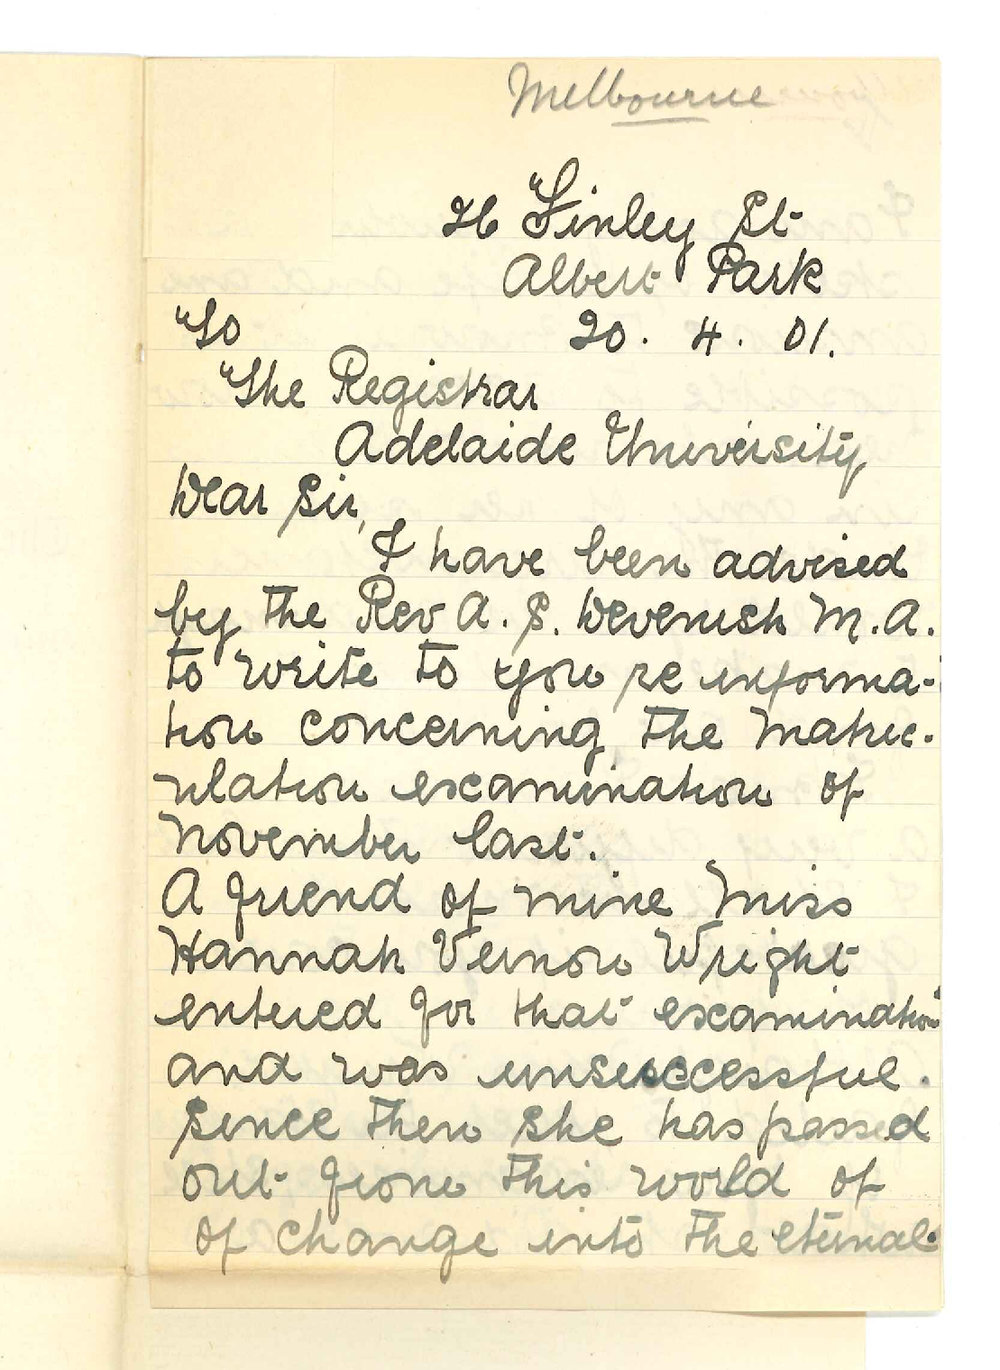 Melbourne
26 Finley St
Albert Park
To 20. 4. 01.
The Registrar
Adelaide University
Dear Sir,
I have been advised
by the Rev A. S. Devenish M.A.
to write to you re informa-
tion concerning the matric-
ulation examination of
November last.
A friend of mine Miss
Hannah Vernon Wright
entered for that examination
and was unsuccessful.
Since then she has passed
out from this world of
of change into the eternal